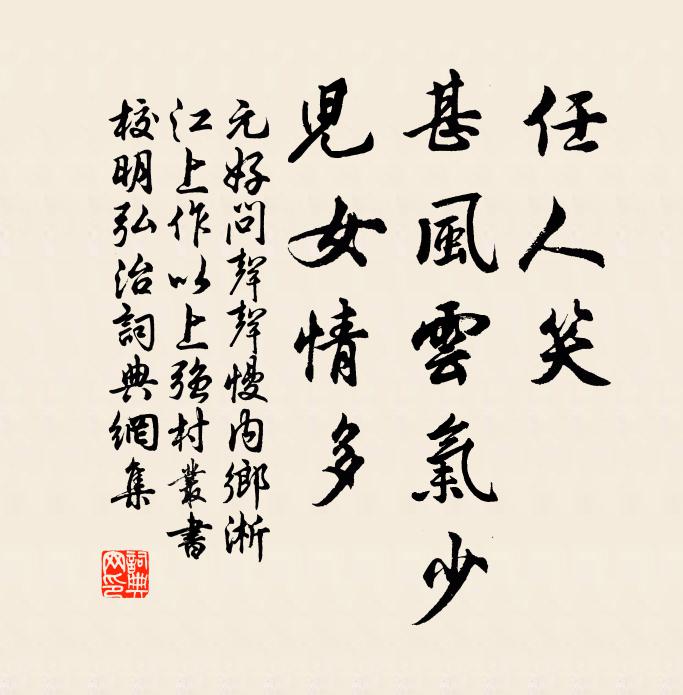 任人笑
甚風雲氣少
兒女情多
元好問聲聲慢內鄉淅
江上作以上彊村叢書
校明弘治詞典網集
詞典網印